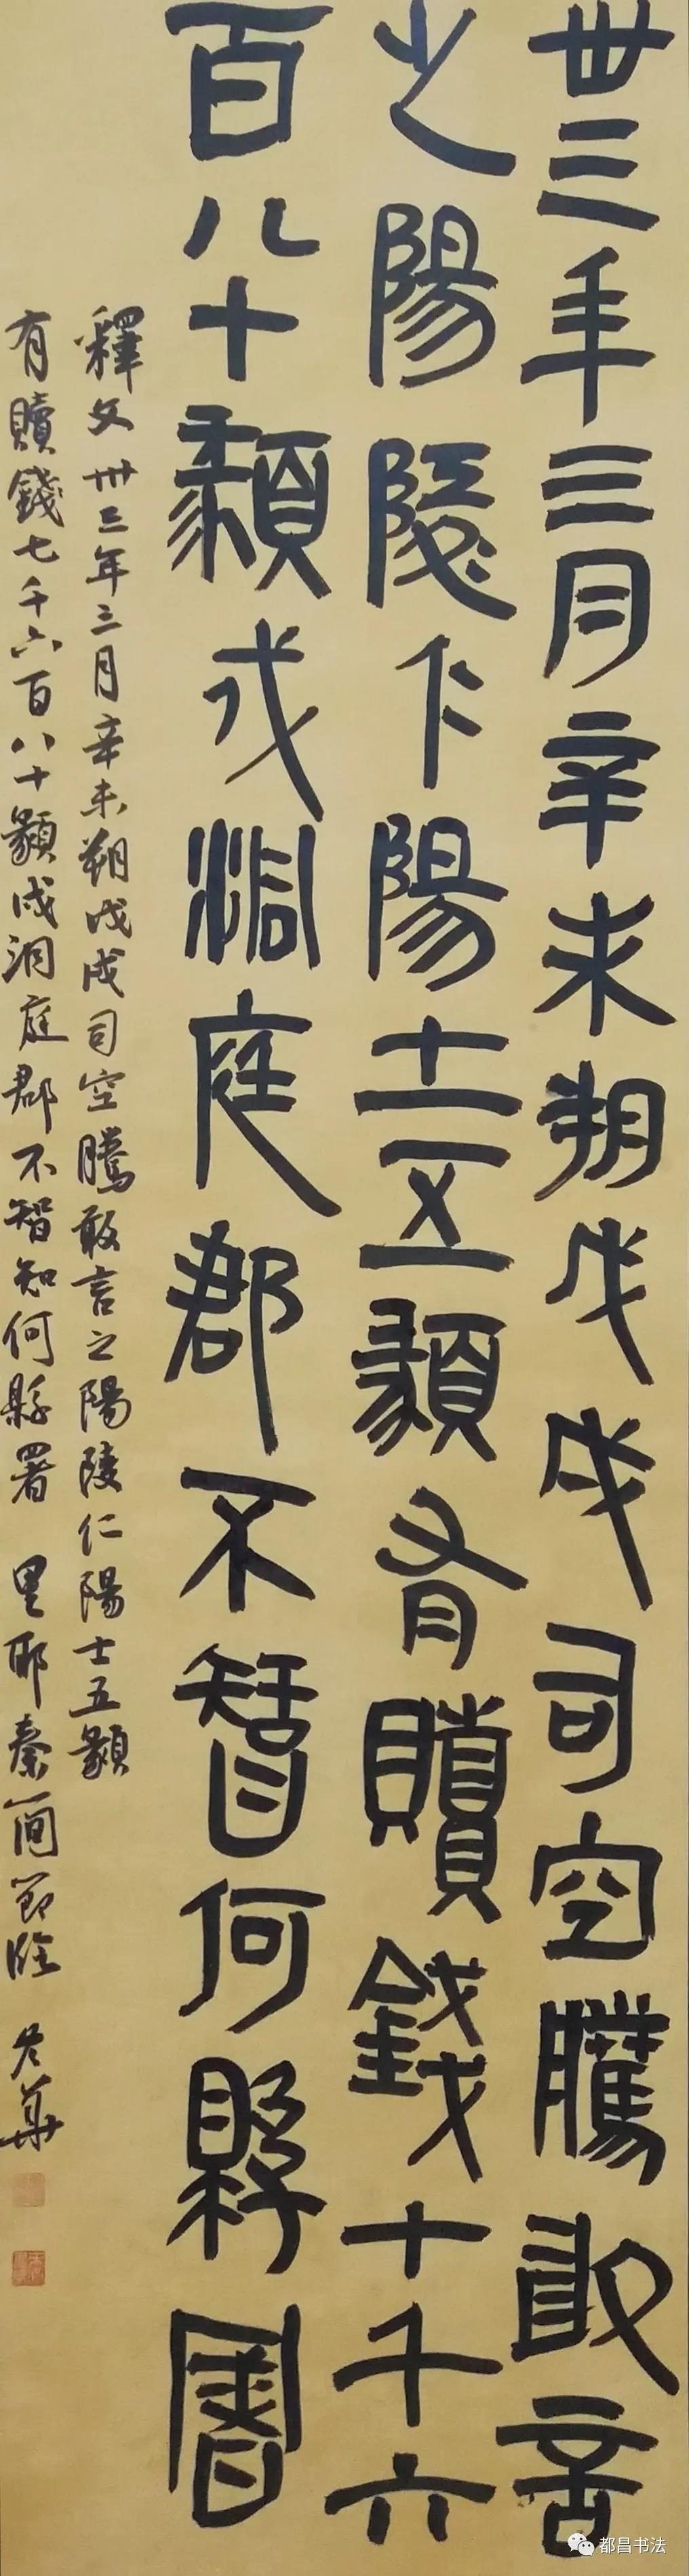 卅三年三月辛未朔戊戌司空騰敢言
之陽陵下陽士五額有贖錢七千六
百八十額戍洞庭郡不智何縣署
釋文卅三年三月辛未朔戊戌司空騰敢言之陽陵仁陽士五額
有贖錢七千六百八十額戍洞庭郡不智知何縣署 里耶秦簡節臨 冬華
都昌书法